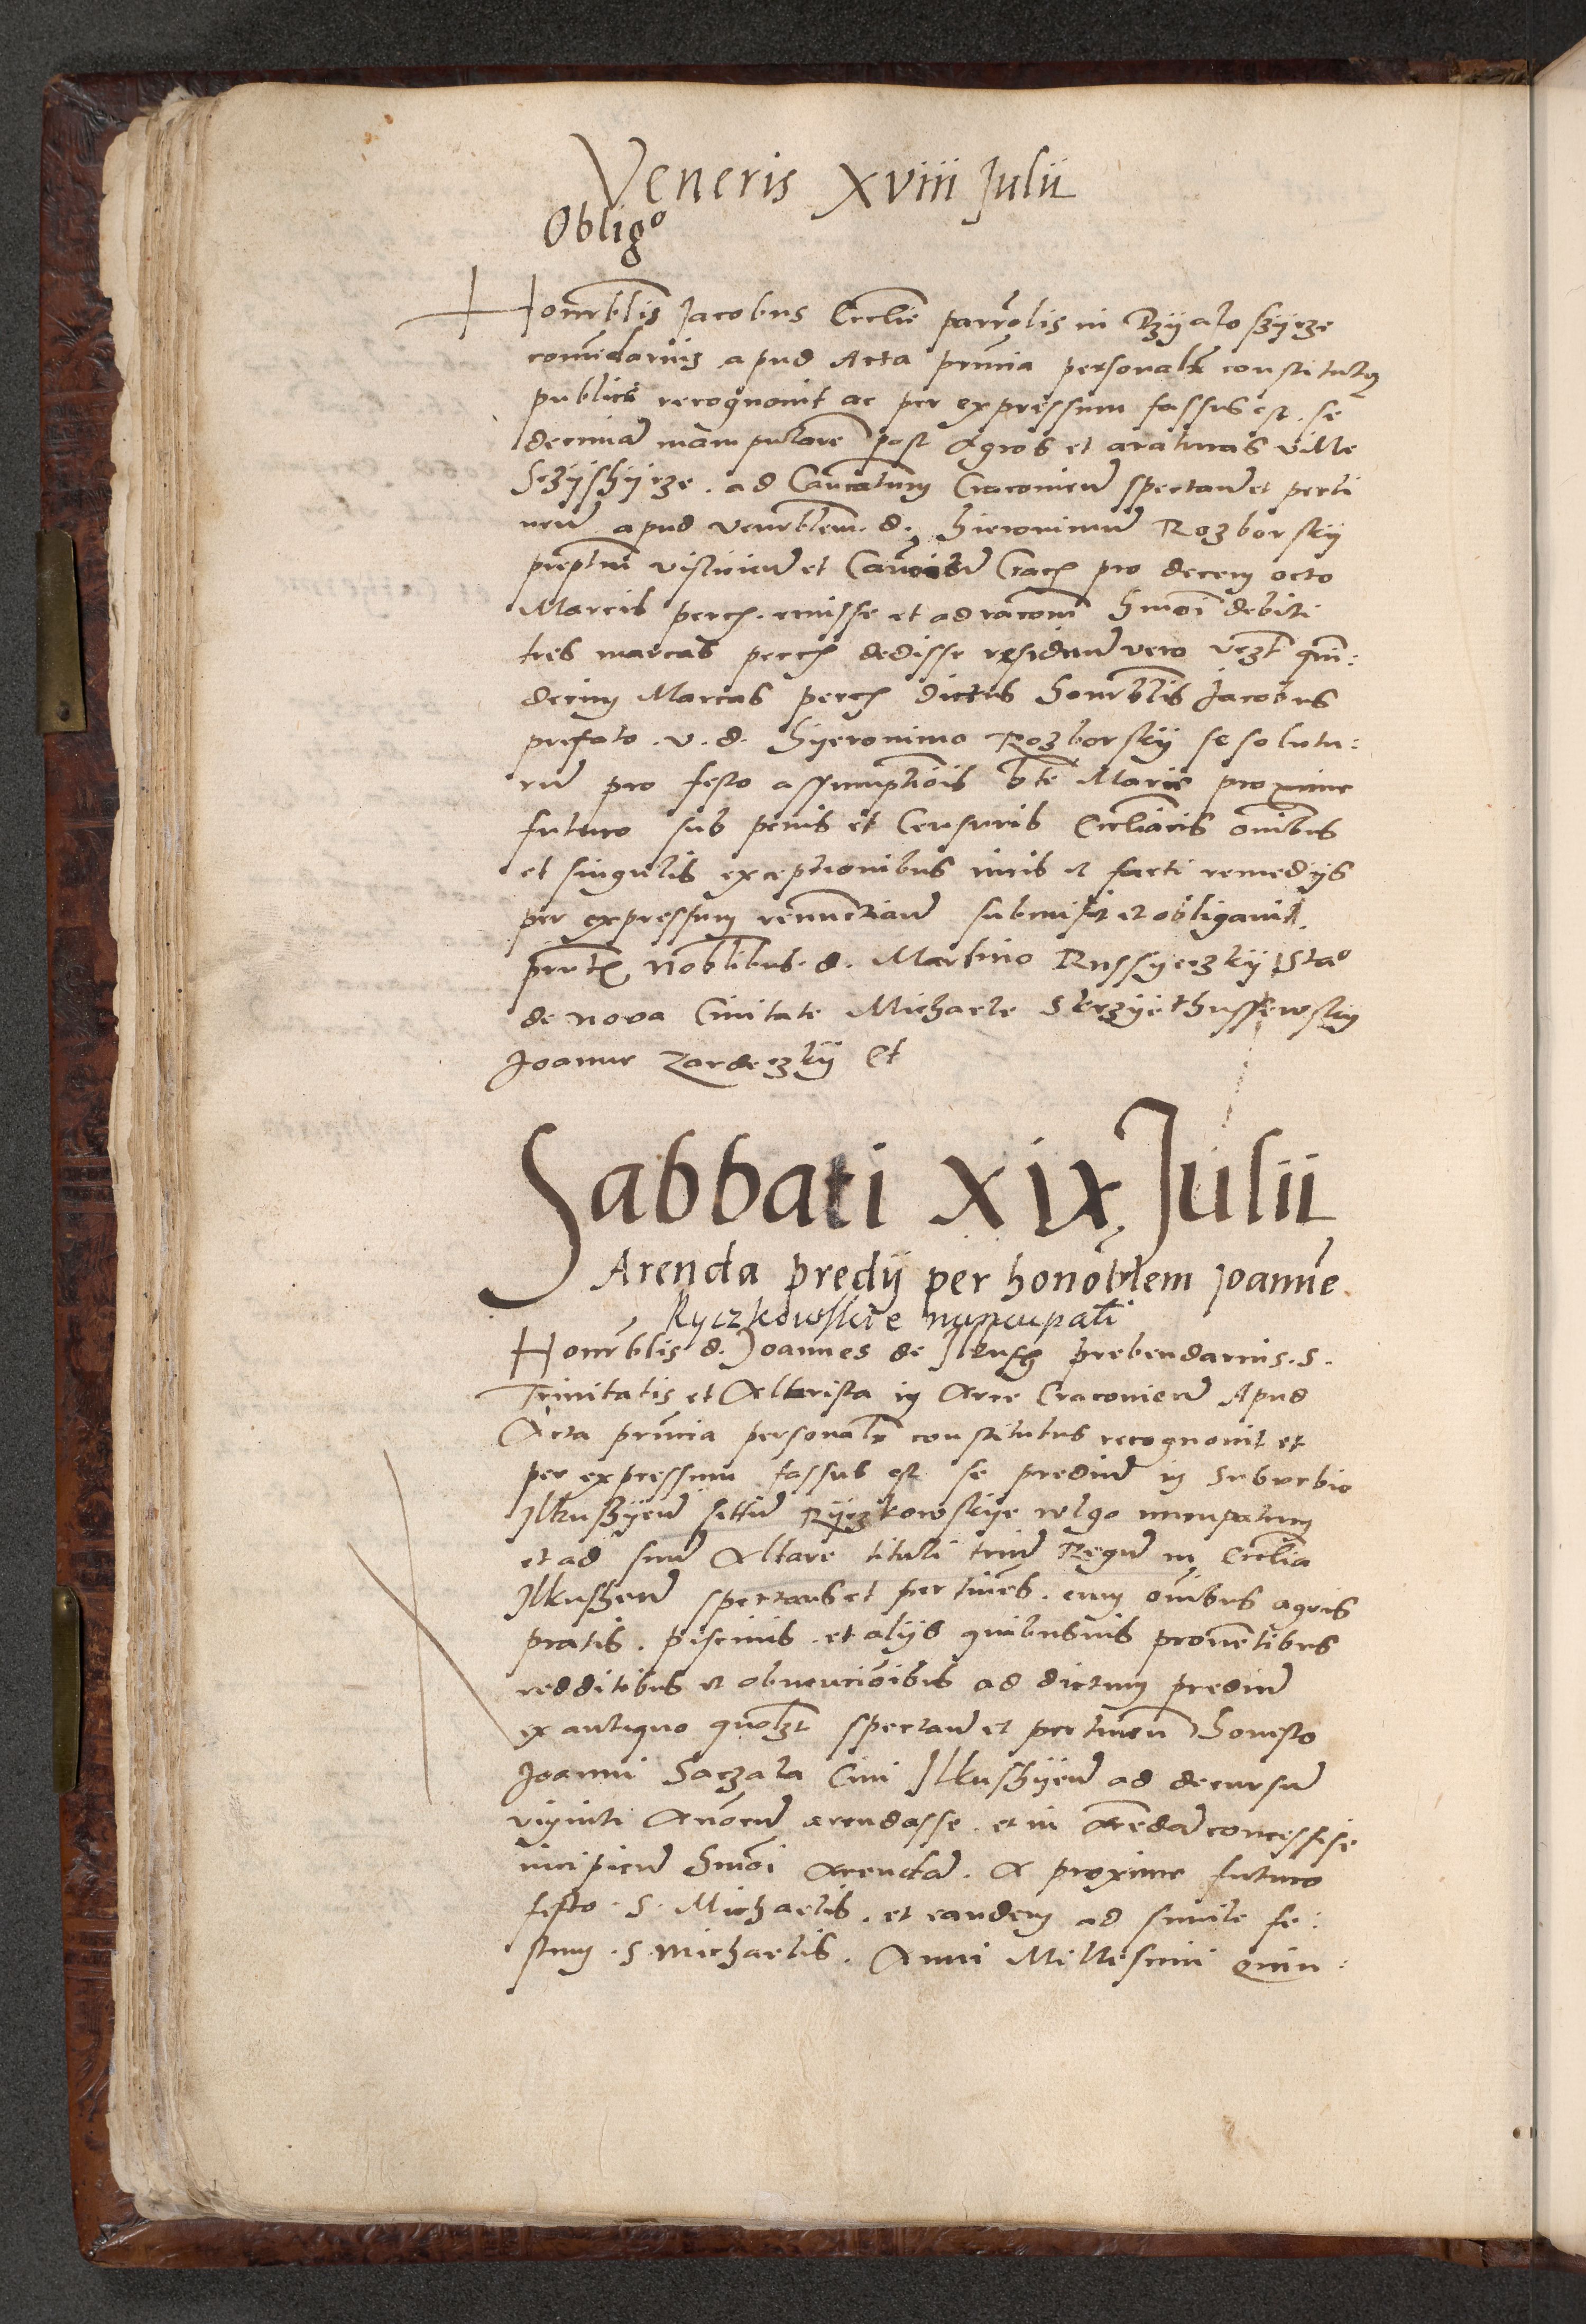 Veneris xviii Julii
Obligo
Honrblis Jacobus Ecclie parrolis in Dzyaloszycze
comendarius apud Acta prnia personalr constitutus
publice recognovit ac per expressum fassus est. se
decimam manipularem post Agros et araturas ville
ad Canricatum Cracovien spectan et perti
nen apud venrblem. d. Hieronimum Rozborsky
preptum visliciem et Canonicum Crach pro decem octo
Marcis pecch. emisse et ad raconem hmoi debiti
tres marcas pecch dedisse residuum vero vczt quin:
decim Marcas pecch dictus honrblis Jacobus
prefato. v. d. Hyeronimo Rozborsky se solutu:
rum pro festo assumptiois bte Marie proxime
futuro sub penis et Censuris Eccliacis omibus
et singulis exceptionibus iuris et facti remedijs
per expressum renuncian submisit et obligavit.
prntibus Noblibus. d. Martino Russyeczky Stao
de nova Civitate Michaele Skrzyethussewsky
Joanne Zardeczky Et
Sabbati xix Julii
Arenda predij per honorblem Joannem
Ryczkowskie nuncupati
Honrblis d. Joannes de Ilkusch prebendarius. S.
Trinitatis et Altarista in Arce Cracovien Apud
Acta prnia personalr constitutus recognovit et
per expressum fassus est se predium in Suburbio
Ilkuszyen situm Ryczkowskye vulgo nuncupatum
et ad suum Altare tituli trium Regum in Ecclia
Ilkuszen spectans et pertinens. cum omibus agris
pratis. piscinis. et alijs quibusvis proventibus
redditibus et obvencioibus ad dictum predium
ex antiquo quolzt spectan et pertinen Honesto
Joanni Saczala Civi Ilkuszyen ad decursum
viginti Annorum arendasse. et in Arendam concessisse
incipien hmoi Arendam. A proxime futuro
festo. S. Michaelis. et eandem ad simile fe:
stum. S. Michaelis. Anni Millesimi Quin: